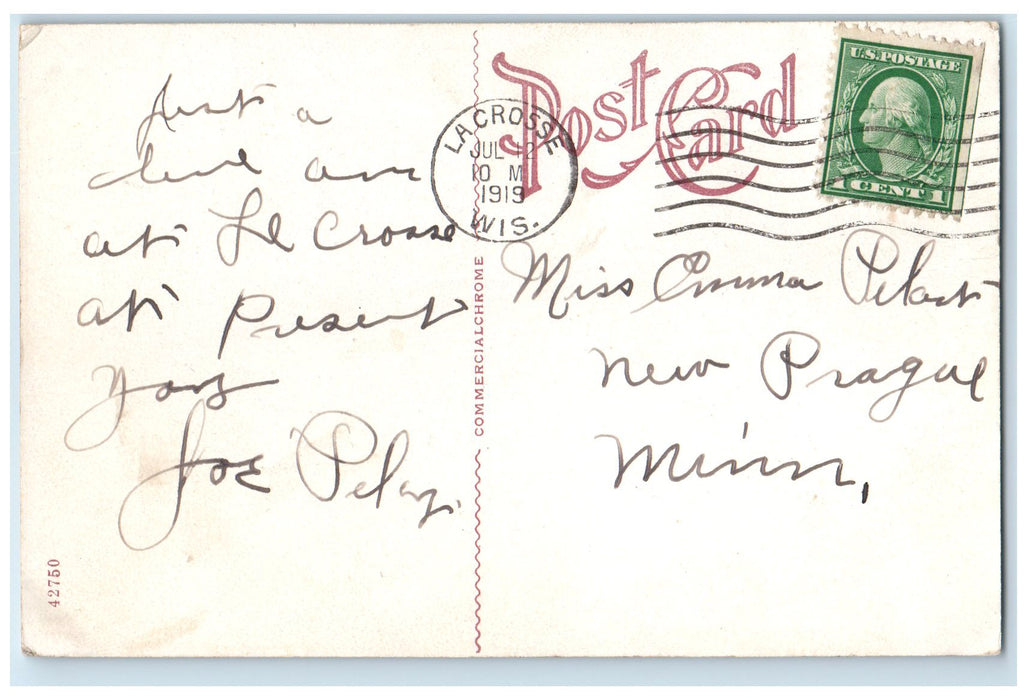 Just a
line am
at La Crosse
at Present
yours
Joe
42750
COMMERCIALCHROME
Post Card
LA CROSSE
JUL 12
10 M
1919
WIS.
U.S. POSTAGE
1 CENT 1
Miss Emma
New Prague
Minn,